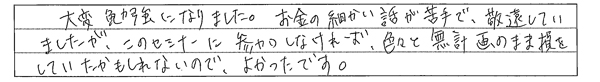 大変勉強になりました。お金の細かい話が苦手で、敬遠してい
ましたが、このセミナーに参加しなければ、色々と無計画のまま損を
していたかもしれないので、よかったです。